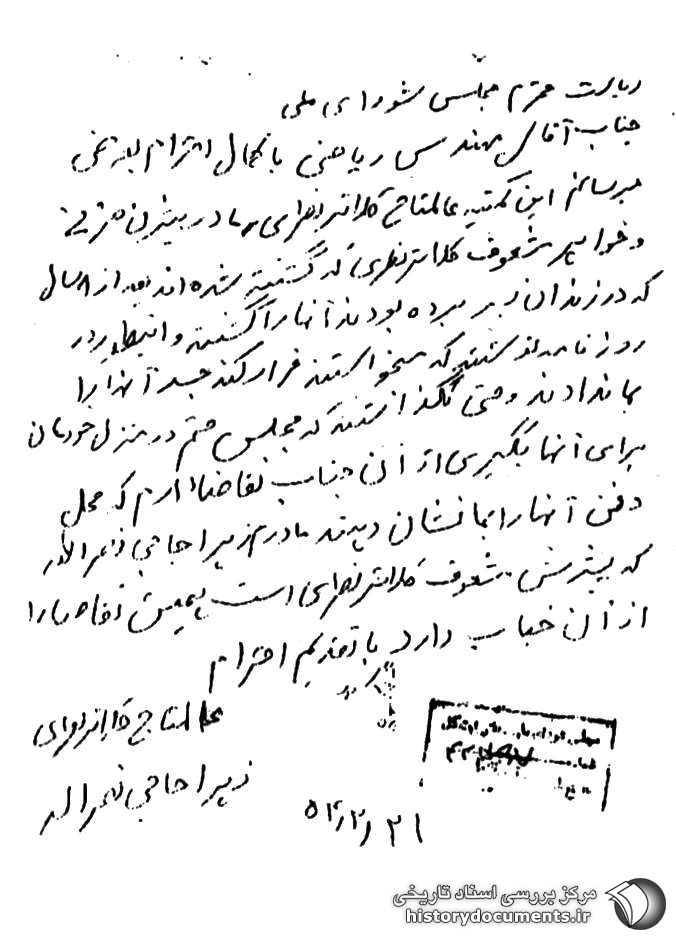 ریاست محترم مجلس شورای ملی
جناب آقای مهندس ریاضی با کمال احترام بعرض
میرساند این کمینه عالمتاج کلانتر نظری مادر بیژن جزنی
و خواهر مشعوف کلانتر نظری که گشته شده اند بعد از ۸ سال
که در زندان بسر برده بودند آنها را گشته و اینطور در
روزنامه نوشتند که میخواستند فرار کنند جسد آنها را
بما ندادند و حتی نگذاشتند که مجلس ختم در منزل خودمان
برای آنها بگیریم از آن جناب تقاضا دارم که محل
دفن آنها را بما نشان دهند مادرم زهرا حاجی نصرالله
که پسرش مشعوف کلانتر نظری است همین تقاضا را
از آن جناب دارد با تقدیم احترام
عالمتاج کلانتر نظری
زهرا حاجی نصراله
۵۴/۲/۲۱
شماره
تاریخ
مرکز بررسی اسناد تاریخی
historydocuments.ir